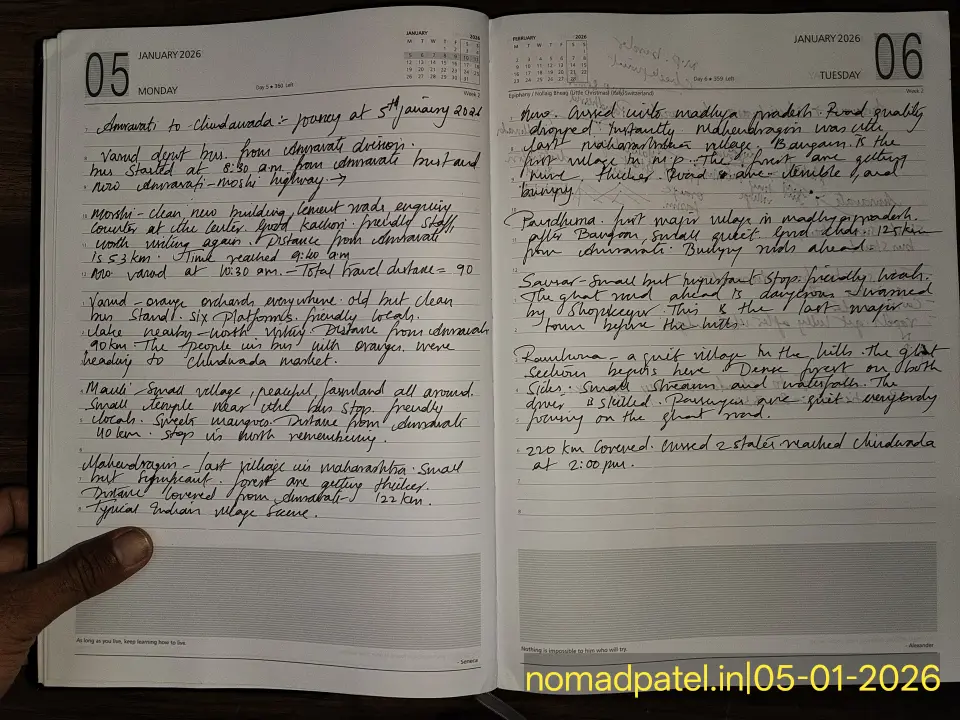 05
JANUARY 2026
MONDAY
Day 5 • 360 Left
Week 2
JANUARY 2026
Amravati to Chindawada :- journey at 5th january 2026
Varud depot bus. from Amravati division.
bus started at 8:30 a.m. from Amravati bus stand
now Amravati - Moshi highway →
Morshi - clean, new building, cement made enquiry
counter at the center. Good kachori. friendly staff,
worth visiting again. Distance from Amravati
is 53 km. Time reached 9:40 am
varud at 10:30 am. - Total travel distance = 90
Varud - orange orchards everywhere. old but clean
bus stand. six Platforms. friendly locals.
lake nearby - worth visiting Distance from Amravati
90 km. The people in bus with oranges were
heading to Chindwada market.
- Small village, peaceful, farmland all around.
small temple near the bus stop. friendly
locals. Sweet mangoes. Distance from Amravati
110 km. stop is worth remembering.
- last village in maharashtra. Small
but significant. forest are getting thicker.
Distance covered from Amravati - 122 km.
Typical Indian village scene.
As long as you live, keep learning how to live.
- Seneca
FEBRUARY 2026
JANUARY 2026
06
TUESDAY
Day 6 • 359 Left
Week 2
Epiphany / Nollaig Bheag (Little Christmas) (Italy/Switzerland)
crossed into madhya pradesh. Road quality
dropped instantly was the
last maharashtrian village. is the
first village in M.P. The forest are getting
thicker. Road are terrible and
bumpy.
Pandhurna. first major village in madhya pradesh.
after small quiet. 125 km
from Amravati. Bumpy roads ahead.
Sausar - Small but important stop. friendly locals.
The ghat road ahead is dangerous - warned
by shopkeeper. This is the last major
town before the hills.
Ramkona - a quiet village in the hills. The ghat
section begins here. Dense forest on both
sides. Small streams and waterfalls. The
driver is skilled. Passengers are quiet everybody
focusing on the ghat road.
220 km covered. crossed 2 states reached Chindwada
at 2:00 pm.
Nothing is impossible to him who will try.
- Alexander
nomadpatel.in|05-01-2026